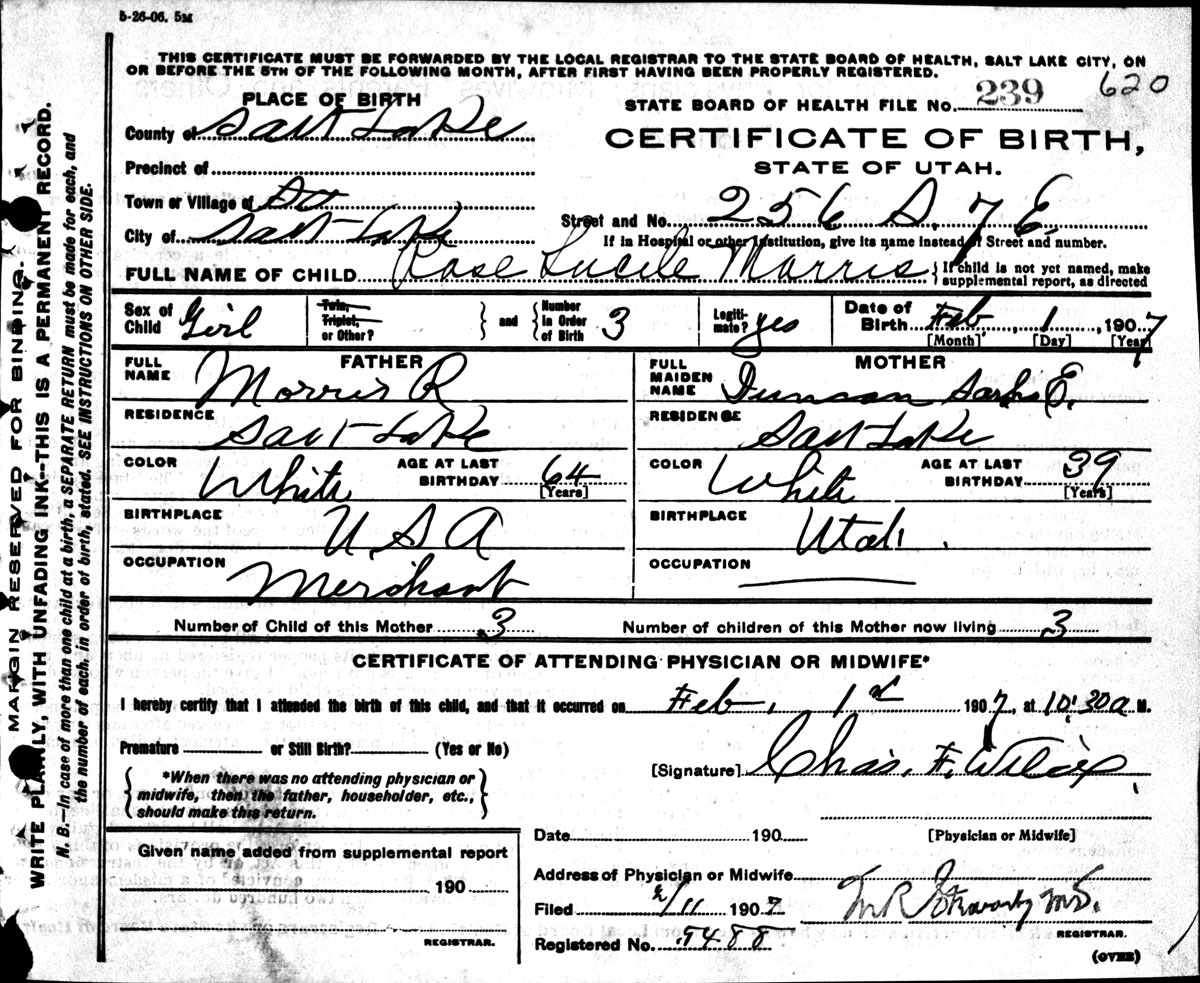 5-26-06. 5M
THIS CERTIFICATE MUST BE FORWARDED BY THE LOCAL REGISTRAR TO THE STATE BOARD OF HEALTH, SALT LAKE CITY, ON
OR BEFORE THE 5TH OF THE FOLLOWING MONTH, AFTER FIRST HAVING BEEN PROPERLY REGISTERED.
620
PLACE OF BIRTH
STATE BOARD OF HEALTH FILE NO. 239
County of Salt Lake
CERTIFICATE OF BIRTH,
STATE OF UTAH.
Precinct of
Town or Village of
Street and No. 256 S. 7 E.
City of Salt Lake
If in Hospital or other Institution, give its name instead of Street and number.
FULL NAME OF CHILD Rose Lucile Morris { If child is not yet named, make
supplemental report, as directed
Sex of Child Girl
Twin, Triplet, or Other? } and { Number in Order of Birth 3
Legitimate? yes
Date of Birth Feb, 1, 1907
[Month] [Day] [Year]
FATHER
FULL NAME Morris R
RESIDENCE Salt Lake
COLOR White AGE AT LAST BIRTHDAY 64 [Years]
BIRTHPLACE U S A
OCCUPATION Merchant
MOTHER
FULL MAIDEN NAME Duncan Sarha E.
RESIDENCE Salt Lake
COLOR White AGE AT LAST BIRTHDAY 39 [Years]
BIRTHPLACE Utah.
OCCUPATION
Number of Child of this Mother 3 Number of children of this Mother now living 3
CERTIFICATE OF ATTENDING PHYSICIAN OR MIDWIFE*
I hereby certify that I attended the birth of this child, and that it occurred on Feb, 1st 1907, at 10:30 a M.
Premature or Still Birth? (Yes or No)
{ *When there was no attending physician or
midwife, then the father, householder, etc.,
should make this return. }
[Signature] Chas. F. Wilcox
Date 190 [Physician or Midwife]
Given name added from supplemental report
190
REGISTRAR.
Address of Physician or Midwife
Filed 2/11 1907 M.D.
REGISTRAR.
Registered No. 9488
(OVER)
MARGIN RESERVED FOR BINDING.
WRITE PLAINLY, WITH UNFADING INK--THIS IS A PERMANENT RECORD.
N. B.—In case of more than one child at a birth, a SEPARATE RETURN must be made for each, and
the number of each, in order of birth, stated. SEE INSTRUCTIONS ON OTHER SIDE.